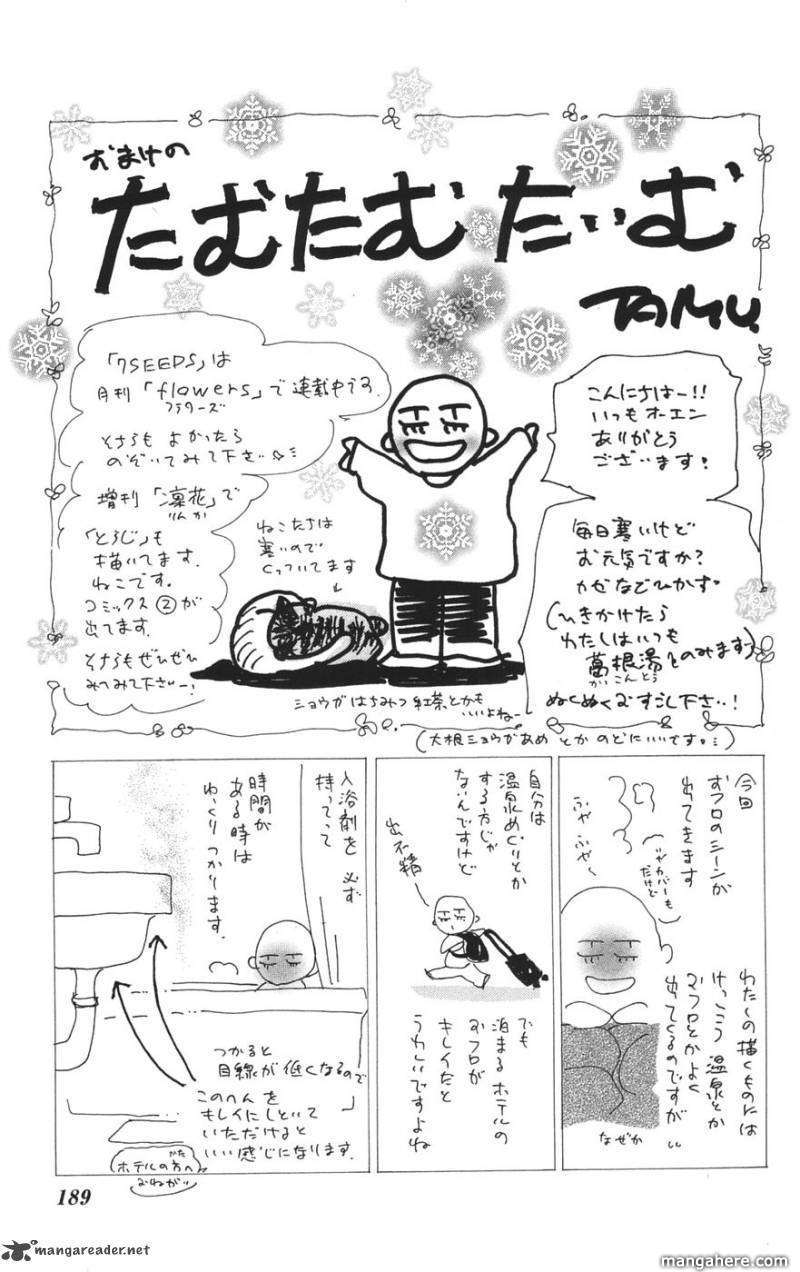 おまけの
たむたむたいむ
TAMU.
こんにちはー!!
いつもオーエン
ありがとう
ございます。
毎日寒いけど
お元気ですか?
カゼなどひかず。
(ひきかけたら
わたしはいつも
葛根湯をのみます)
かっこんとう
ぬくぬくおすごし下さい!
(大根ショウガあめとかのどにいいです。)
「7SEEDS」は
月刊「flowers」で連載中です。
フラワーズ
そちらもよかったら
のぞいてみて下さい
増刊「凛花」で
りんか
「とらじ」も
描いてます。
ねこです。
コミックス②が
出てます。
そちらもぜひぜひ
みてみて下さいー!
ねこたちは
寒いので
くっついてます
ショウガはちみつ紅茶とかも
いいよねー。
今回
おフロのシーンが
出てきます
(ツヤカバーも
だけど)
わたしの描くものには
けっこう温泉とか
おフロとかよく
出てくるのですが
なぜか
自分は
温泉めぐりとか
する方じゃ
ないんですけど
出不精
でも
泊まるホテルの
おフロが
キレイだと
うれしいですよね
入浴剤を必ず
持ってって
時間が
ある時は
ゆっくりつかります。
つかると
目線が低くなるので
このへんを
キレイにしといて
いただけると
いい感じになります。
ホテルの方へ
かた
おねがい
189
mangareader.net
mangahere.com